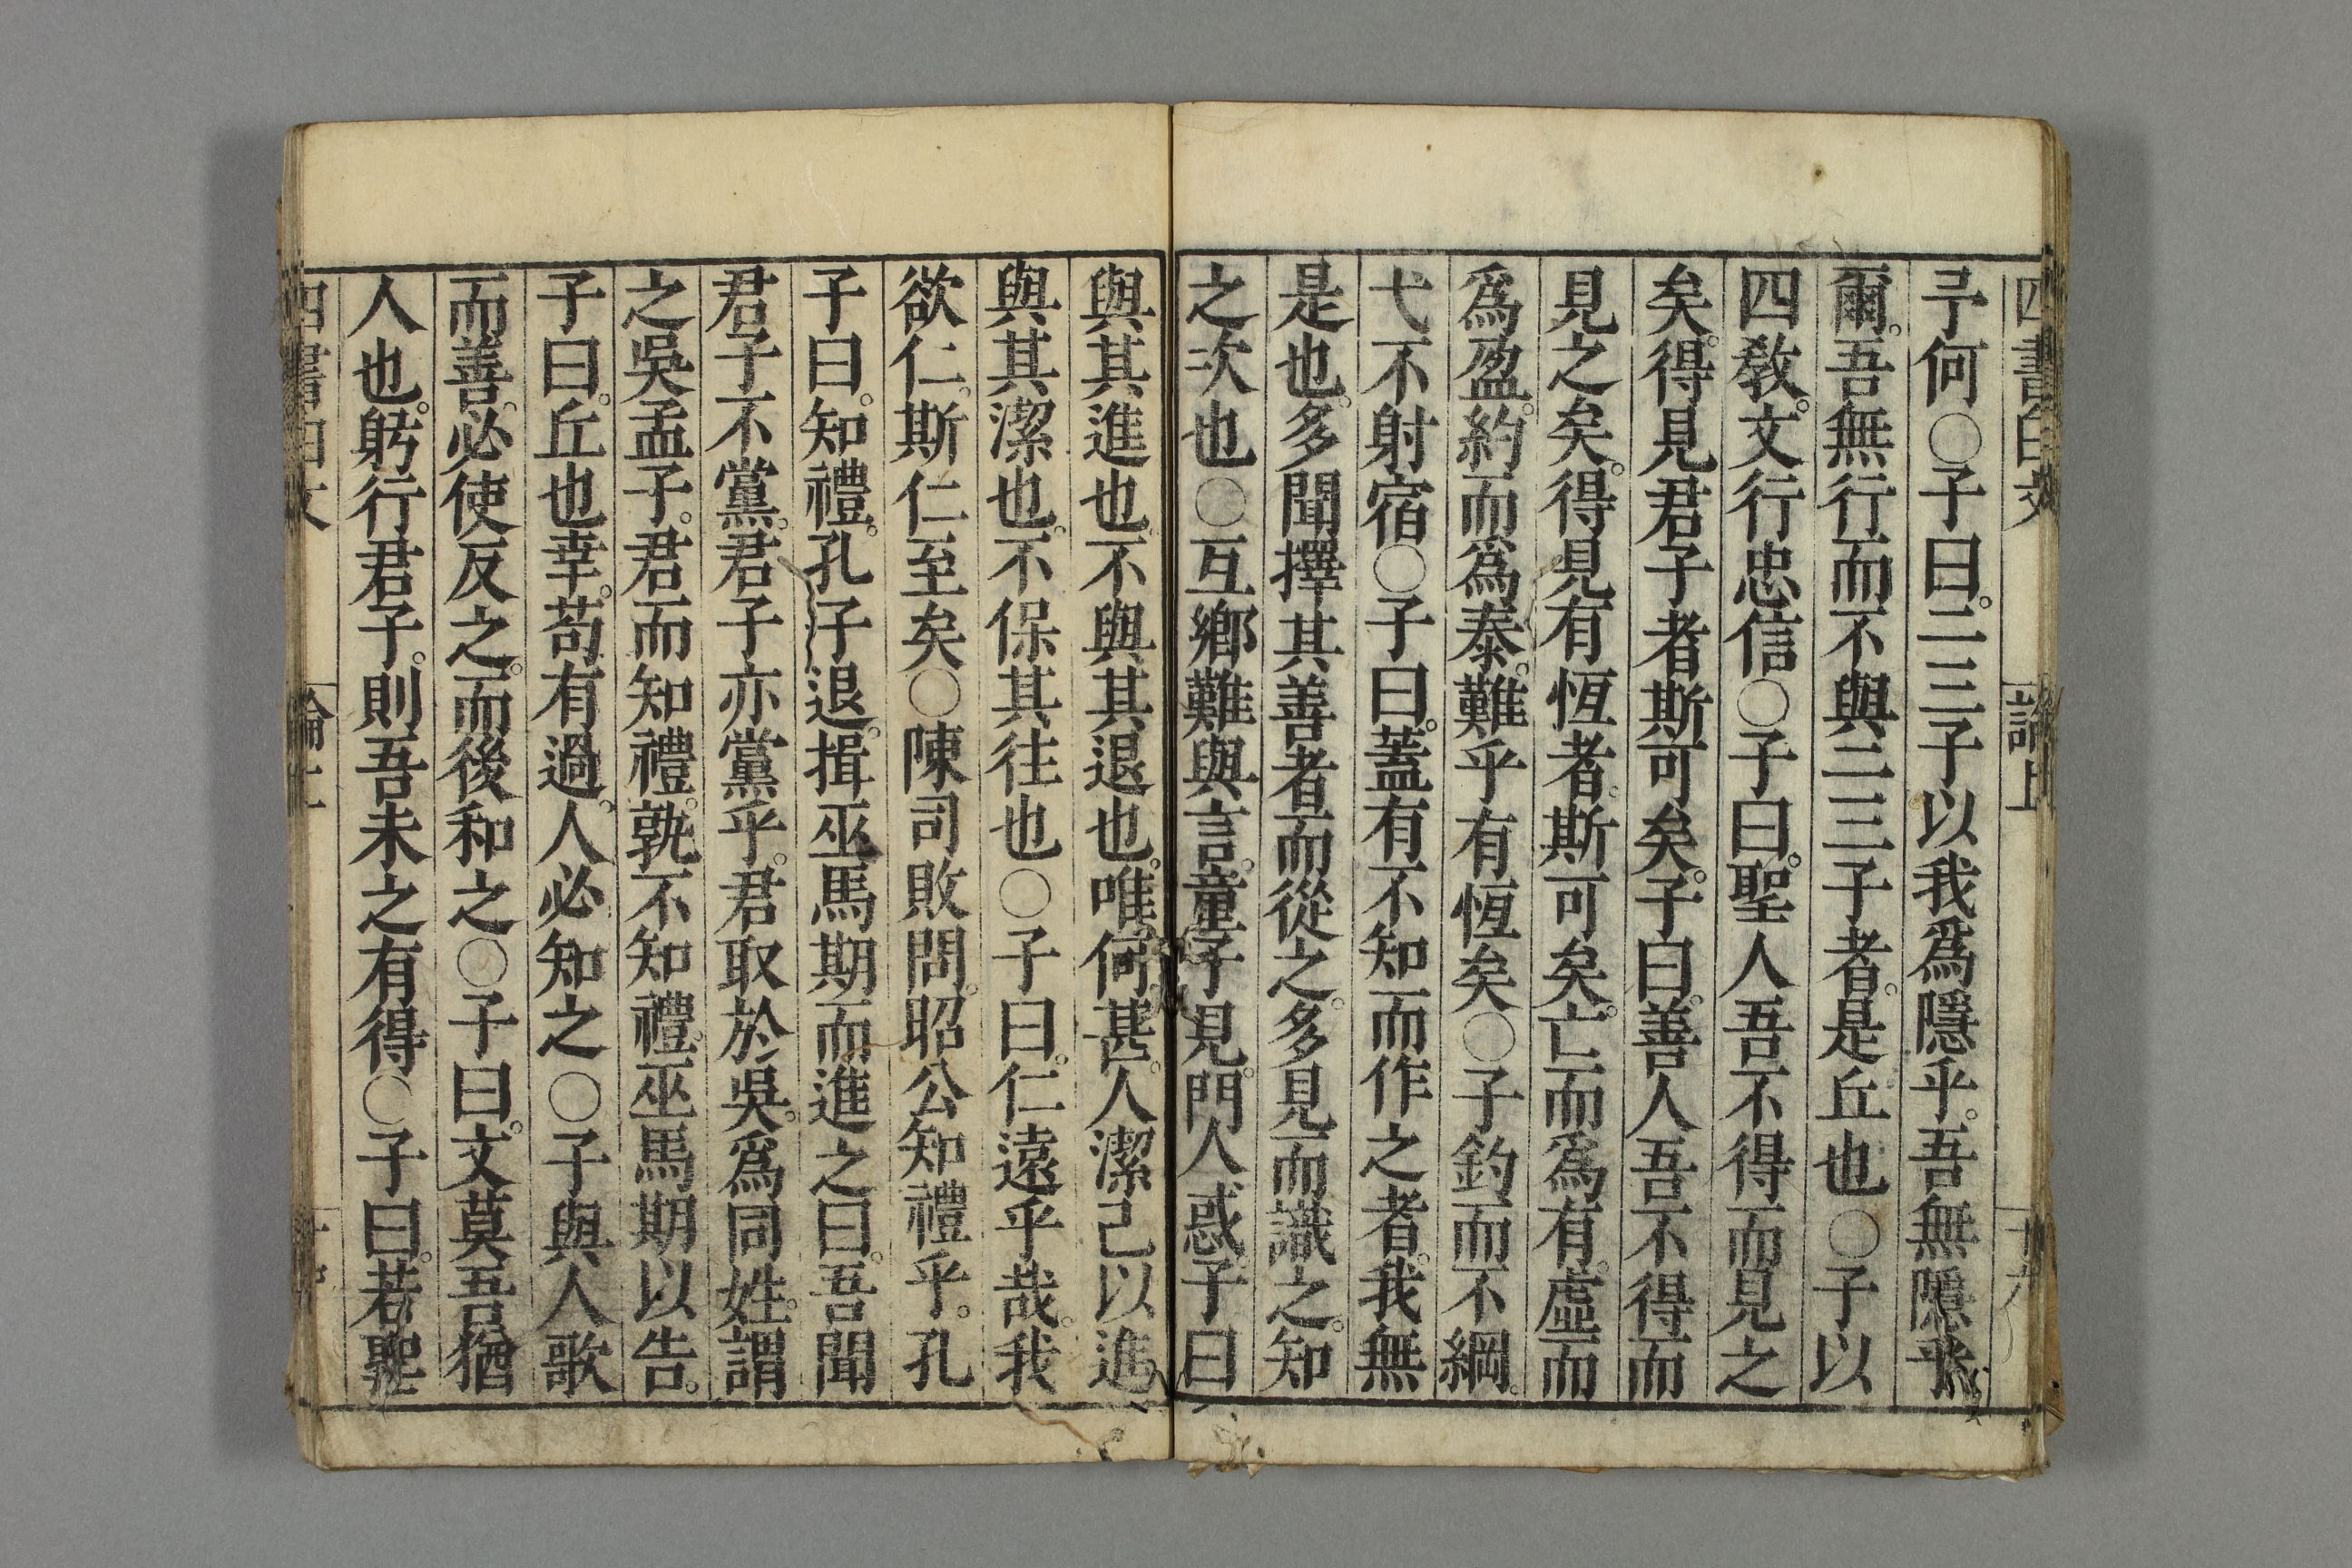 四書白文 論上 十六
予何○子曰。二三子以我爲隱乎。吾無隱乎
爾。吾無行而不與二三子者。是丘也○子以
四敎。文行忠信○子曰。聖人吾不得而見之
矣。得見君子者斯可矣。子曰。善人吾不得而
見之矣。得見有恆者。斯可矣。亡而爲有。虛而
爲盈。約而爲泰。難乎有恆矣○子釣而不綱。
弋不射宿○子曰。蓋有不知而作之者。我無
是也。多聞擇其善者而從之。多見而識之。知
之次也○互鄕難與言。童子見。門人惑。子曰
與其進也不與其退也。唯何甚。人潔己以進。
與其潔也。不保其往也○子曰。仁遠乎哉。我
欲仁。斯仁至矣○陳司敗問。昭公知禮乎。孔
子曰。知禮。孔子退。揖巫馬期而進之曰。吾聞
君子不黨。君子亦黨乎。君取於吳。爲同姓。謂
之吳孟子。君而知禮。孰不知禮。巫馬期以告。
子曰。丘也幸。苟有過。人必知之○子與人歌
而善。必使反之。而後和之○子曰。文莫吾猶
人也。躬行君子。則吾未之有得○子曰。若聖
四書白文 論上